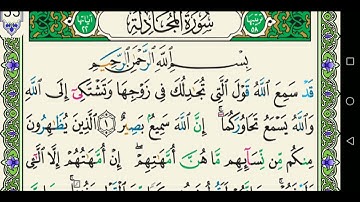 سُورَةُ المُجَادلَةِ
بِسْمِ اللَّهِ الرَّحْمَٰنِ الرَّحِيمِ
قَدْ سَمِعَ اللَّهُ قَوْلَ الَّتِي تُجَٰدِلُكَ فِي زَوْجِهَا وَتَشْتَكِي إِلَى اللَّهِ
وَاللَّهُ يَسْمَعُ تَحَاوُرَكُمَا إِنَّ اللَّهَ سَمِيعٌ بَصِيرٌ ۝١ الَّذِينَ يُظَٰهِرُونَ
مِنكُم مِّن نِّسَآئِهِم مَّا هُنَّ أُمَّهَٰتِهِمْ إِنْ أُمَّهَٰتُهُمْ إِلَّا الَّٰٓـِٔي